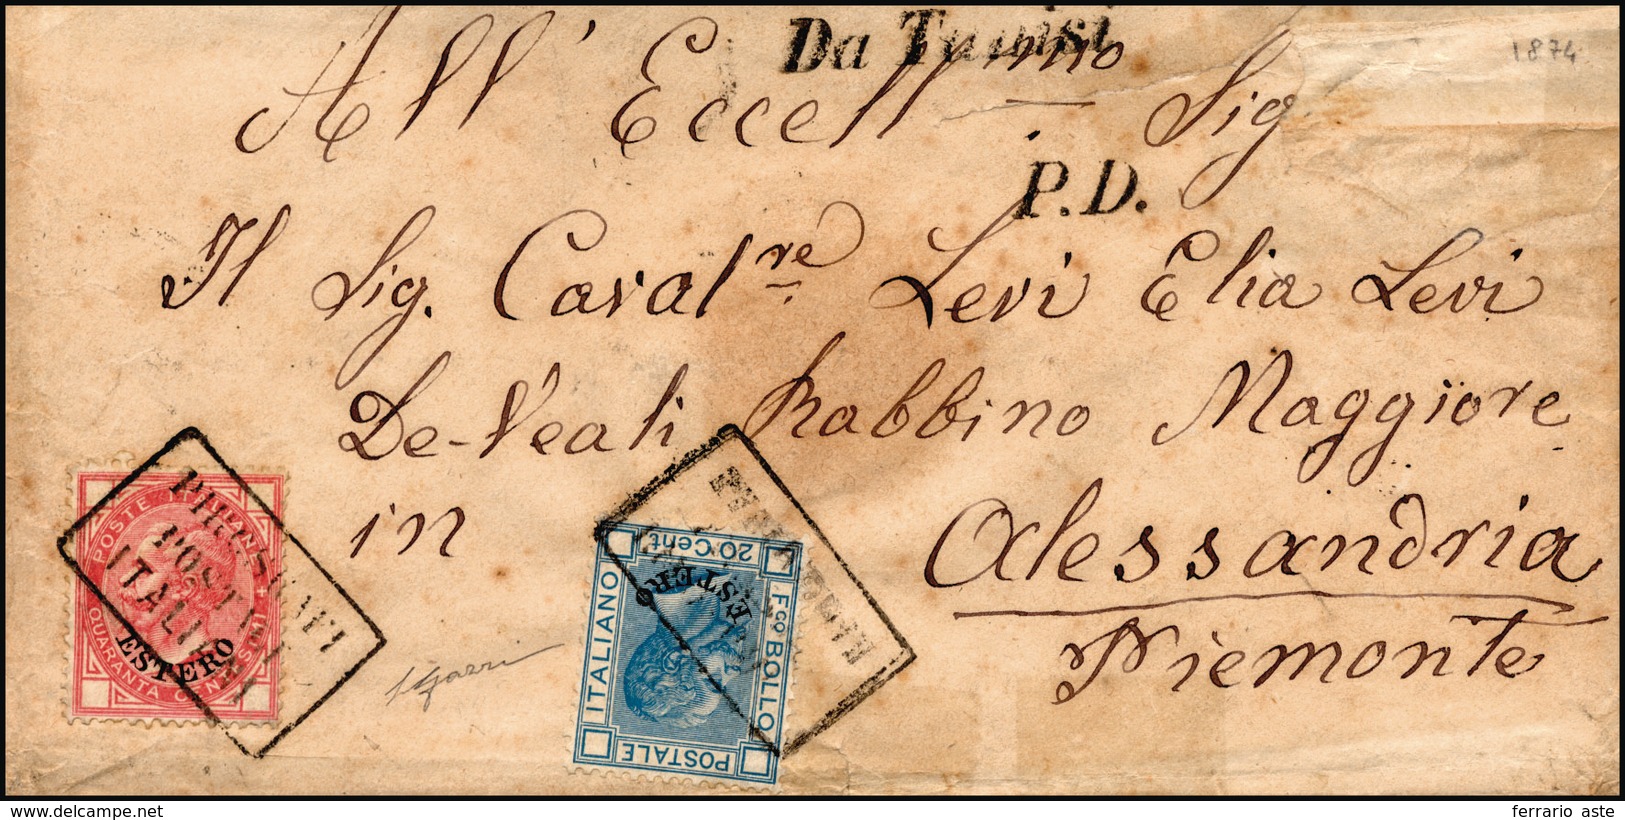 Da Tunisi
1874
All' Eccell mo Sig
P.D.
Il Sig. Caval re Levi Elia Levi
De-Veali Rabbino Maggiore
in Alessandria
Piemonte
PIROSCAFI
POSTALI
ITALIANI
POSTE ITALIANE
QUARANTA CENTESIMI
ESTERO
20 Cent
Fco BOLLO
POSTALE
ITALIANO
ESTERO
PIROSCAFI
ferrario aste